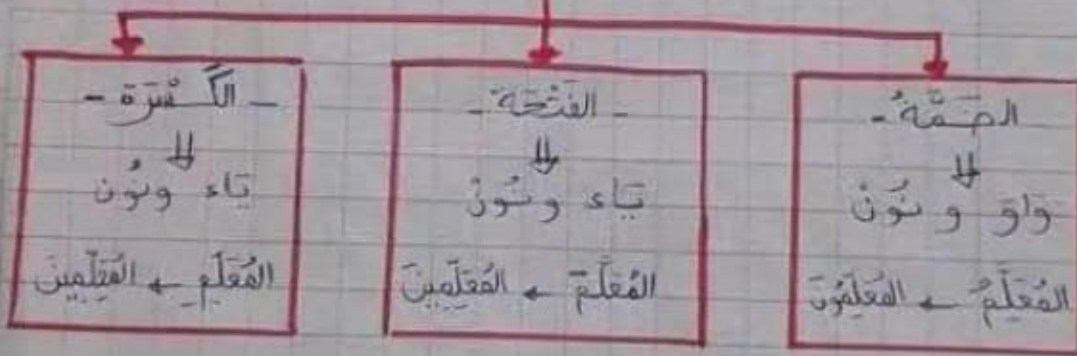 الضَمَّةُ -
⇓
وَاوٌ و نُونٌ
المُعَلِّمُ ← المُعَلِّمُونَ
- الفَتْحَة -
⇓
يَاء و نُونٌ
المُعَلِّمَ ← المُعَلِّمِينَ
- الكَسْرَة -
⇓
يَاء ونُون
المُعَلِّمِ ← المُعَلِّمِينَ